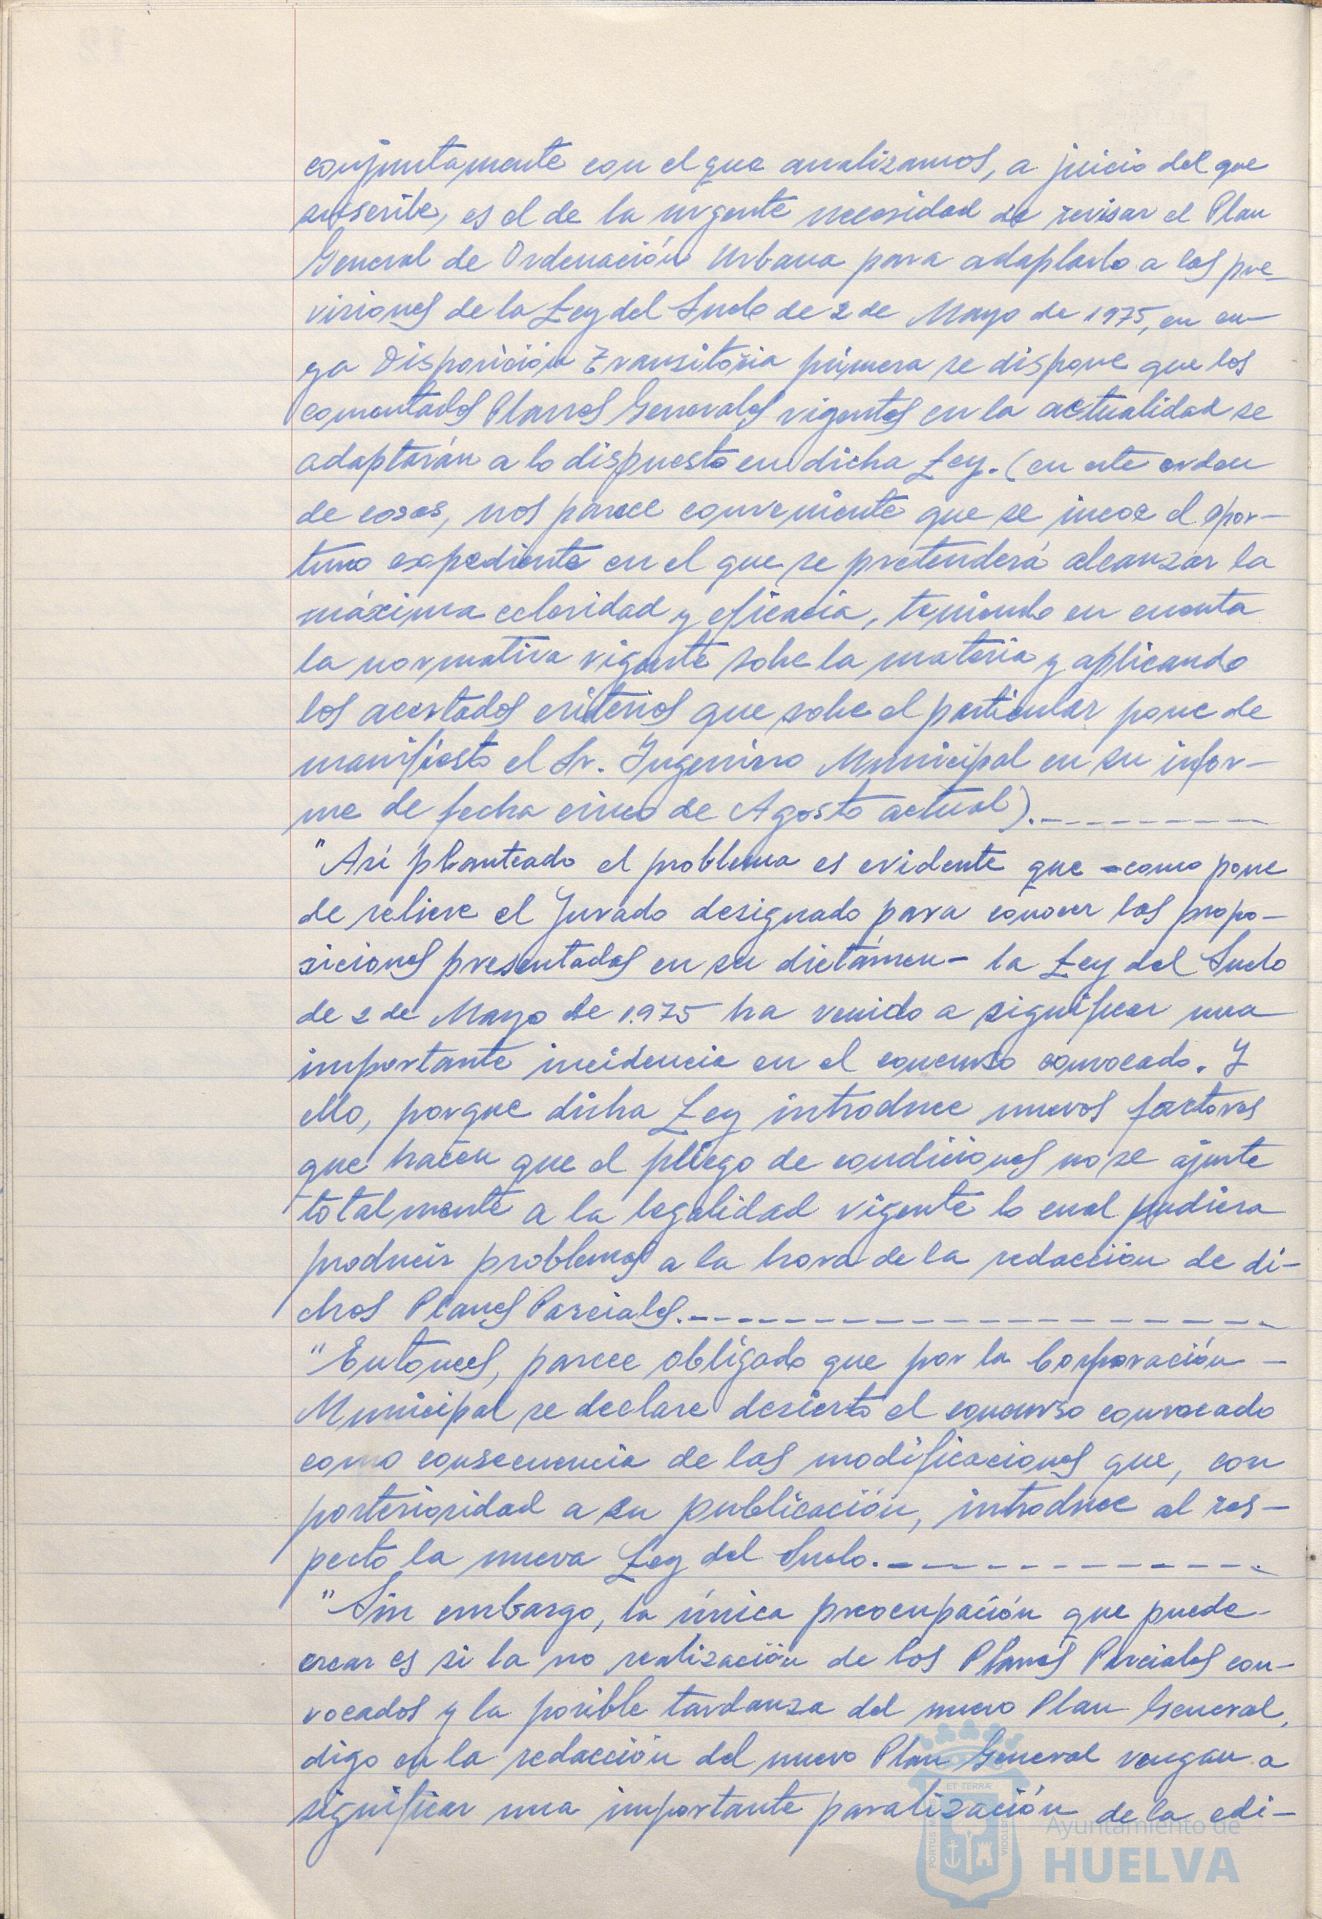 conjuntamente con el que analizamos, a juicio del que
suscribe, es el de la urgente necesidad de revisar el Plan
General de Ordenación Urbana para adaptarlo a las pre-
visiones de la Ley del Suelo de 2 de Mayo de 1975, en cu-
ya Disposición Transitoria primera se dispone que los
comentados Planes Generales vigentes en la actualidad se
adaptarán a lo dispuesto en dicha Ley. (en este orden
de cosas, nos parece conveniente que se incoe el opor-
tuno expediente en el que se pretenderá alcanzar la
máxima celeridad y eficacia, teniendo en cuenta
la normativa vigente sobre la materia y aplicando
los acertados criterios que sobre el particular pone de
manifiesto el Sr. Ingeniero Municipal en su infor-
me de fecha cinco de Agosto actual).---------
"Asi planteado el problema es evidente que -como pone
de relieve el Jurado designado para conocer las propo-
siciones presentadas en su dictámen- la Ley del Suelo
de 2 de Mayo de 1.975 ha venido a significar una
importante incidencia en el concurso convocado. Y
ello, porque dicha Ley introduce nuevos factores
que hacen que el pliego de condiciones no se ajuste
totalmente a la legalidad vigente lo cual pudiera
producir problemas a la hora de la redacción de di-
chos Planes Parciales.--------------------
"Entonces, parece obligado que por la Corporación -
Municipal se declare desierto el concurso convocado
como consecuencia de las modificaciones que, con
posterioridad a su publicación, introduce al res-
pecto la nueva Ley del Suelo.-------------
"Sin embargo, la única preocupación que puede
crear es si la no realización de los Planes Parciales con-
vocados y la posible tardanza del nuevo Plan General,
digo en la redacción del nuevo Plan General vengan a
significar una importante paralización de la edi-
ET TERRAE
PORTUS
Ayuntamiento de
HUELVA